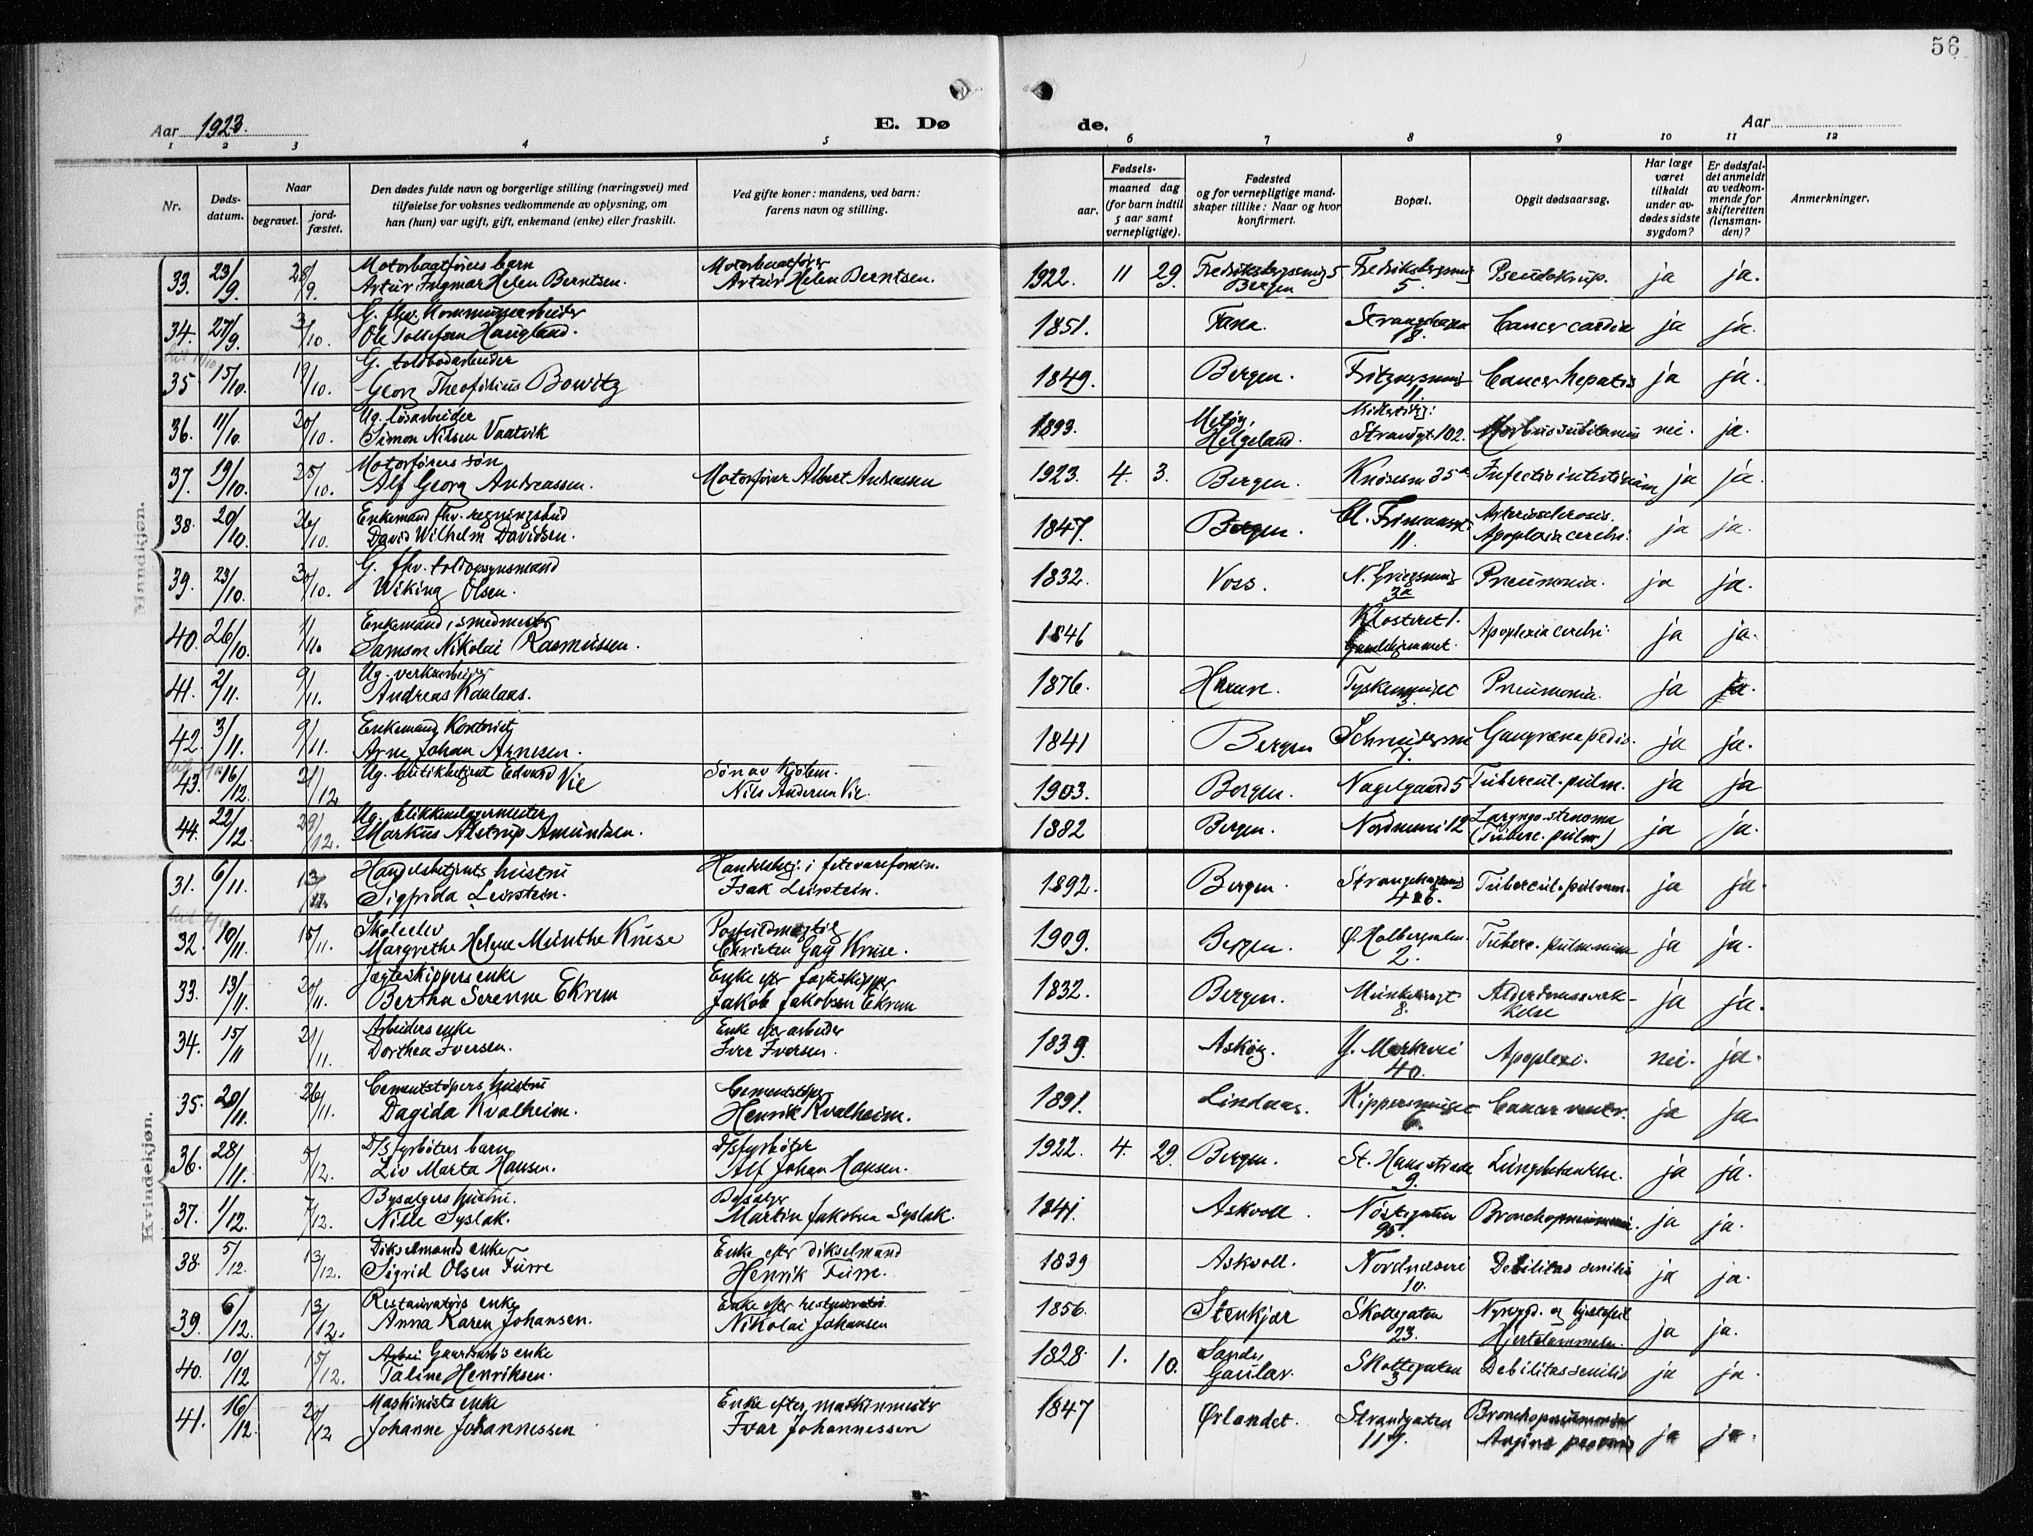 56
Aar 1923.
E. Dø
de.
Aar
1 2 3 4 5 6 7 8 9 10 11 12
Nr.
Døds-
datum.
Naar
begravet.
jord-
fæstet.
Den dødes fulde navn og borgerlige stilling (næringsvei) med
tilføielse for voksnes vedkommende av oplysning, om
han (hun) var ugift, gift, enkemand (enke) eller fraskilt.
Ved gifte koner: mandens, ved barn:
farens navn og stilling.
Fødsels-
aar.
maaned dag
(for barn indtil
5 aar samt
vernepligtige).
Fødested
og for vernepligtige mand-
skaper tillike: Naar og hvor
konfirmert.
Bopæl.
Opgit dødsaarsag.
Har læge
været
tilkaldt
under av-
dødes sidste
sygdom?
Er dødsfal-
det anmeldt
av vedkom-
mende for
skifteretten
(lensman-
den)?
Anmerkninger.
Mandkjøn.
33. 23/9 28/9. Motorbaatførers barn
Artur Ingmar Helen Berntsen. Motorbaatfører
Artur Helen Berntsen. 1922. 11 29. Fredriksbergsmug 5
Bergen Fredriksbergsmug
5. Pseudokrup. ja ja.
34. 27/9 3/10. G. fhv. Kommunearbeider
Ole Tollefsen Haugland. 1851. Fana. 18. Cancer cardia ja ja.
35 15/10. 19/10. G. toldbodarbeider
Georg Theofilius Bowitz 1849. Bergen. 11. Cancer hepatis ja ja.
36. 11/10. 20/10. Ug. løsarbeider
Simon Nilsen Vaatvik 1893. Meløy,
Helgeland. Strandgt. 102. Morbus subitaneus nei. ja.
37. 19/10. 25/10. Motorførers søn
Alf Georg Andreassen. Motorfører Albert Andreassen 1923. 4. 3. Bergen. Knøsesm 35a Infectio intestinum ja ja.
38. 20/10. 26/10. Enkemand fhv. regningsbud
David Wilhelm Davidsen. 1847. Bergen. Cl. Frimannsgt.
11. Arteriosclerosis.
Apoplexia cerebri. ja ja.
39. 23/10. 30/10. G. fhv. toldopsynsmand
Wiking Olsen. 1832. Voss. N. Griegsmug
3a Pneumonia. ja ja.
40. 26/10. 1/11. Enkemand, smedmester
Samson Nikolai Rasmussen. 1846 Klosteret 1.
Gamlehjemmet. Apoplexia cerebri. ja ja.
41. 2/11. 9/11. Ug. verksarbeider
Andreas Kaalaas. 1876. Tyskesmuget
3. Pneumonia. ja ja.
42. 3/11. 9/11. Enkemand Kontorist
Arne Johan Arnesen. 1841 Bergen
7. Gangræna pedis. ja ja.
43. 16/12. 21/12 Ug. butikbetjent Edvard Vie Søn av Kjøbm.
Nils Andersen Vie. 1903. Bergen. Nagelgaard 5 Tubercul. pulm. ja ja
44. 22/12. 29/12. Ug. blikkenslagermester
Markus Alstrup Amundsen. 1882 Bergen. Nordnesvei 12 Laryngo-stenoma
(Tuberc. pulm) ja ja.
Kvindekjøn.
31. 6/11. 13/11. Handelsbetjents hustru
Sigfrida Leirstein. Handelsbetj. i fetevareforretn.
Isak Leirstein. 1892. Bergen. Strangehagen
426. Tubercul. pulmm. ja ja.
32. 10/11. 15/11. Skoleelev
Margrethe Helene Munthe Kruse Postfuldmægtig
Christen Gay Kruse. 1909. Bergen. Ø. Holbergsalm.
2. Tuberc. pulmonum ja ja.
33. 13/11. 20/11. Jægteskippers enke
Bertha Serenne Ekrem Enke efter Jægteskipper
Jakob Jakobsen Ekrem 1832. Bergen.
8. Alderdomssvæk-
kelse ja ja.
34. 15/11 21/11. Arbeiders enke
Dorthea Iversen. Enke efter arbeider
Iver Iversen. 1839. Askøy. Y. Markevei
40. Apoplexi. nei. ja.
35. 20/11. 26/11. Cementstøpers hustru
Dagida Kvalheim. Cementstøper
Henrik Kvalheim. 1891. Lindaas. Kippersmuget
6. Cancer ventr. ja ja.
36. 28/11. 5/12. D/S fyrbøters barn
Liv Marta Hansen. D/S fyrbøter
Alf Johan Hansen. 1922. 4. 29. Bergen. St. Hans strede
9. Lungebetændelse. ja ja
37. 1/12. 7/12. Bysælgers hustru.
Nille Syslak. Bysælger
Martin Jakobsen Syslak. 1841. Askvoll. Nøstegaten
95. Bronchopneumoni. ja ja.
38. 5/12. 13/12. Dikselmands enke
Sigrid Olsen Furre Enke efter dikselmand
Henrik Furre. 1839 Askvoll. Nordnesvei
10. Debilitas senilis ja ja.
39. 6/12. 13/12. Restauratørs enke
Anna Karen Johansen. Enke efter restauratør
Nikolai Johansen 1856. Stenkjær Skottegaten
23. Nyresygd. og hjertefeil
Hjertelammelse. ja ja.
40. 10/12 15/12. Gaardbr.s enke
Taline Henriksen. 1828. 1. 10. Sande,
Gaular. Skottegaten
3 Debilitas senilis ja ja.
41. 16/12. 20/12 Maskinists enke
Johanne Johannessen Enke efter maskinmester
Ivar Johannessen 1847 Ørlandet. Strandgaten
117. Bronchopneumonia
Angina pectoris ja ja.